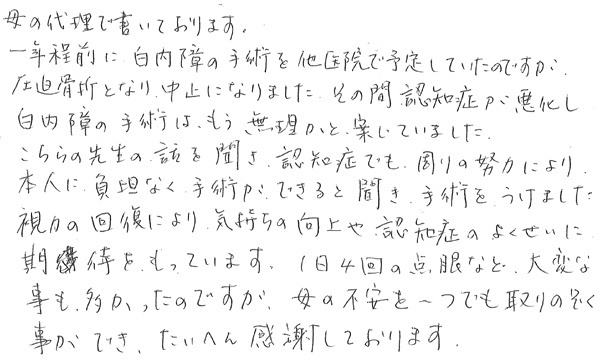 母の代理で書いております。
一年程前に白内障の手術を他医院で予定していたのですが、
圧迫骨折となり、中止になりました。その間認知症が悪化し
白内障の手術は、もう無理かと案じていました。
こちらの先生の話を聞き、認知症でも、周りの努力により、
本人に負担なく手術ができると聞き、手術をうけました
視力の回復により、気持ちの向上や認知症のよくせいに
期待をもっています。1日4回の点眼など、大変な
事も多かったのですが、母の不安を一つでも取りのぞく
事ができ、たいへん感謝しております。